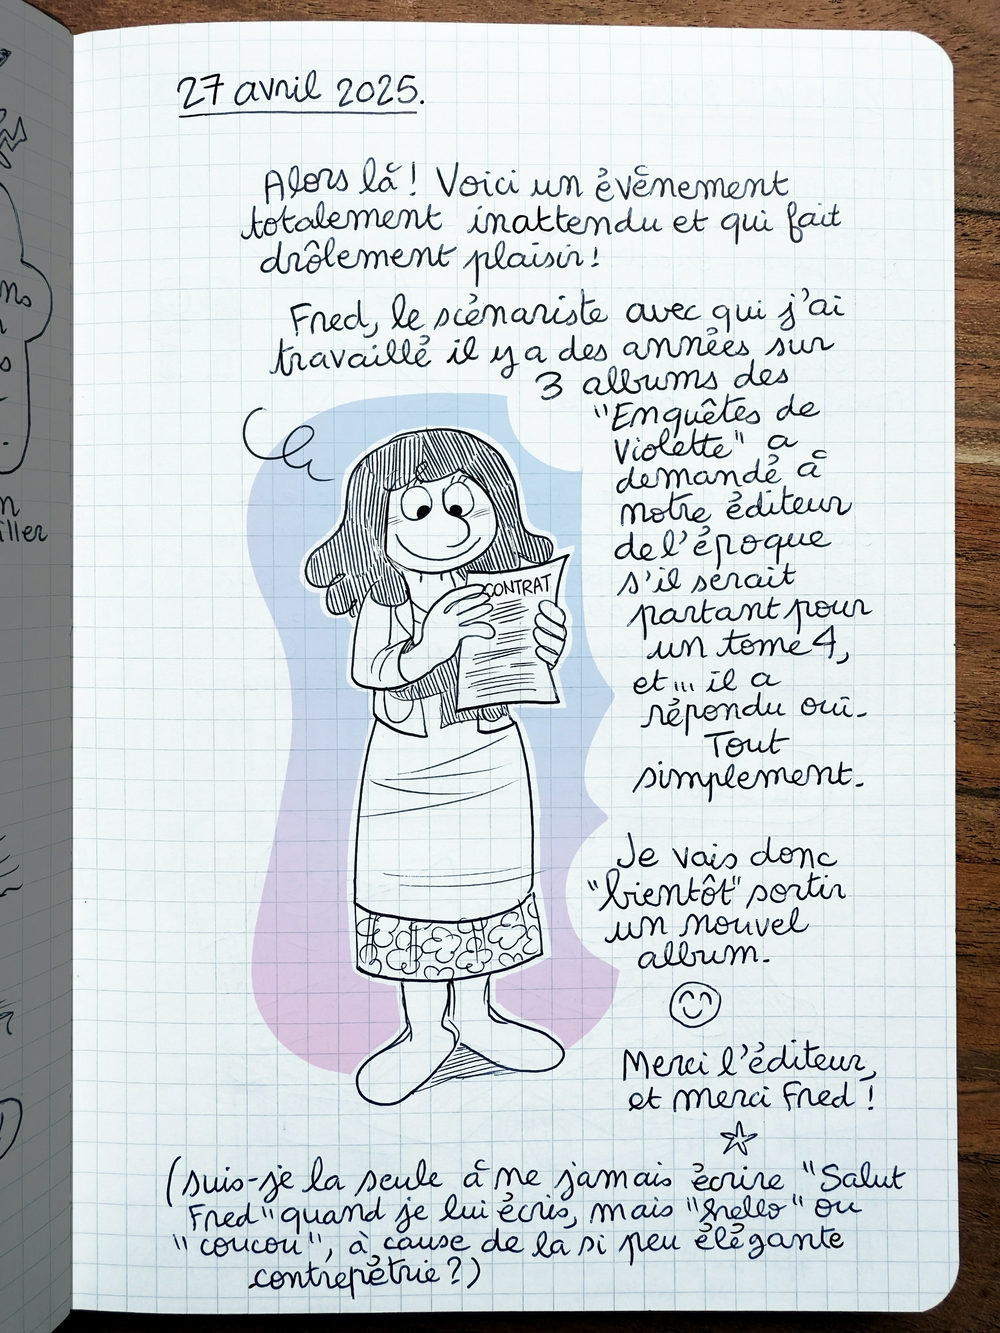 27 avril 2025.
Alors là ! Voici un évènement
totalement inattendu et qui fait
drôlement plaisir !
Fred, le scénariste avec qui j'ai
travaillé il y a des années sur
3 albums des
"Enquêtes de
Violette" a
demandé à
notre éditeur
de l'époque
s'il serait
partant pour
un tome 4,
et... il a
répondu oui.
Tout
simplement.
CONTRAT
Je vais donc
"bientôt" sortir
un nouvel
album.
Merci l'éditeur,
et merci Fred !
(suis-je la seule à ne jamais écrire "Salut
Fred" quand je lui écris, mais "hello" ou
"coucou", à cause de la si peu élégante
contrepétrie ?)